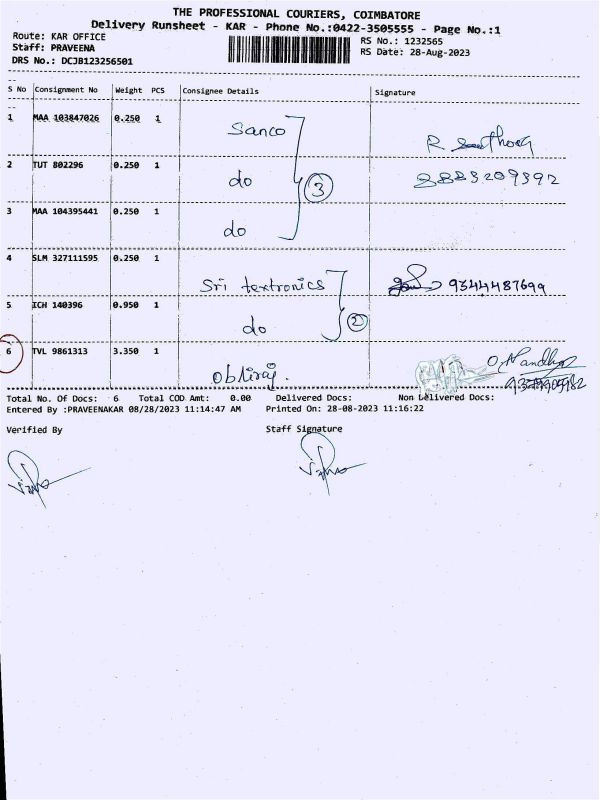 THE PROFESSIONAL COURIERS, COIMBATORE
Delivery Runsheet - KAR - Phone No.:0422-3505555 - Page No.:1
Route: KAR OFFICE
RS No.: 1232565
Staff: PRAVEENA
RS Date: 28-Aug-2023
DRS No.: DCJB123256501
S No Consignment No Weight PCS Consignee Details Signature
1 MAA 103847026 0.250 1 Sanco
R
2 TUT 802296 0.250 1 do 3 8883209392
3 MAA 104395441 0.250 1 do
4 SLM 327111595 0.250 1 Sri textronics 9344487699
5 ICH 140396 0.950 1 do 2
6 TVL 9861313 3.350 1 Obliraj.
Total No. Of Docs: 6 Total COD Amt: 0.00 Delivered Docs: Non Delivered Docs:
Entered By :PRAVEENAKAR 08/28/2023 11:14:47 AM Printed On: 28-08-2023 11:16:22
Verified By Staff Signature